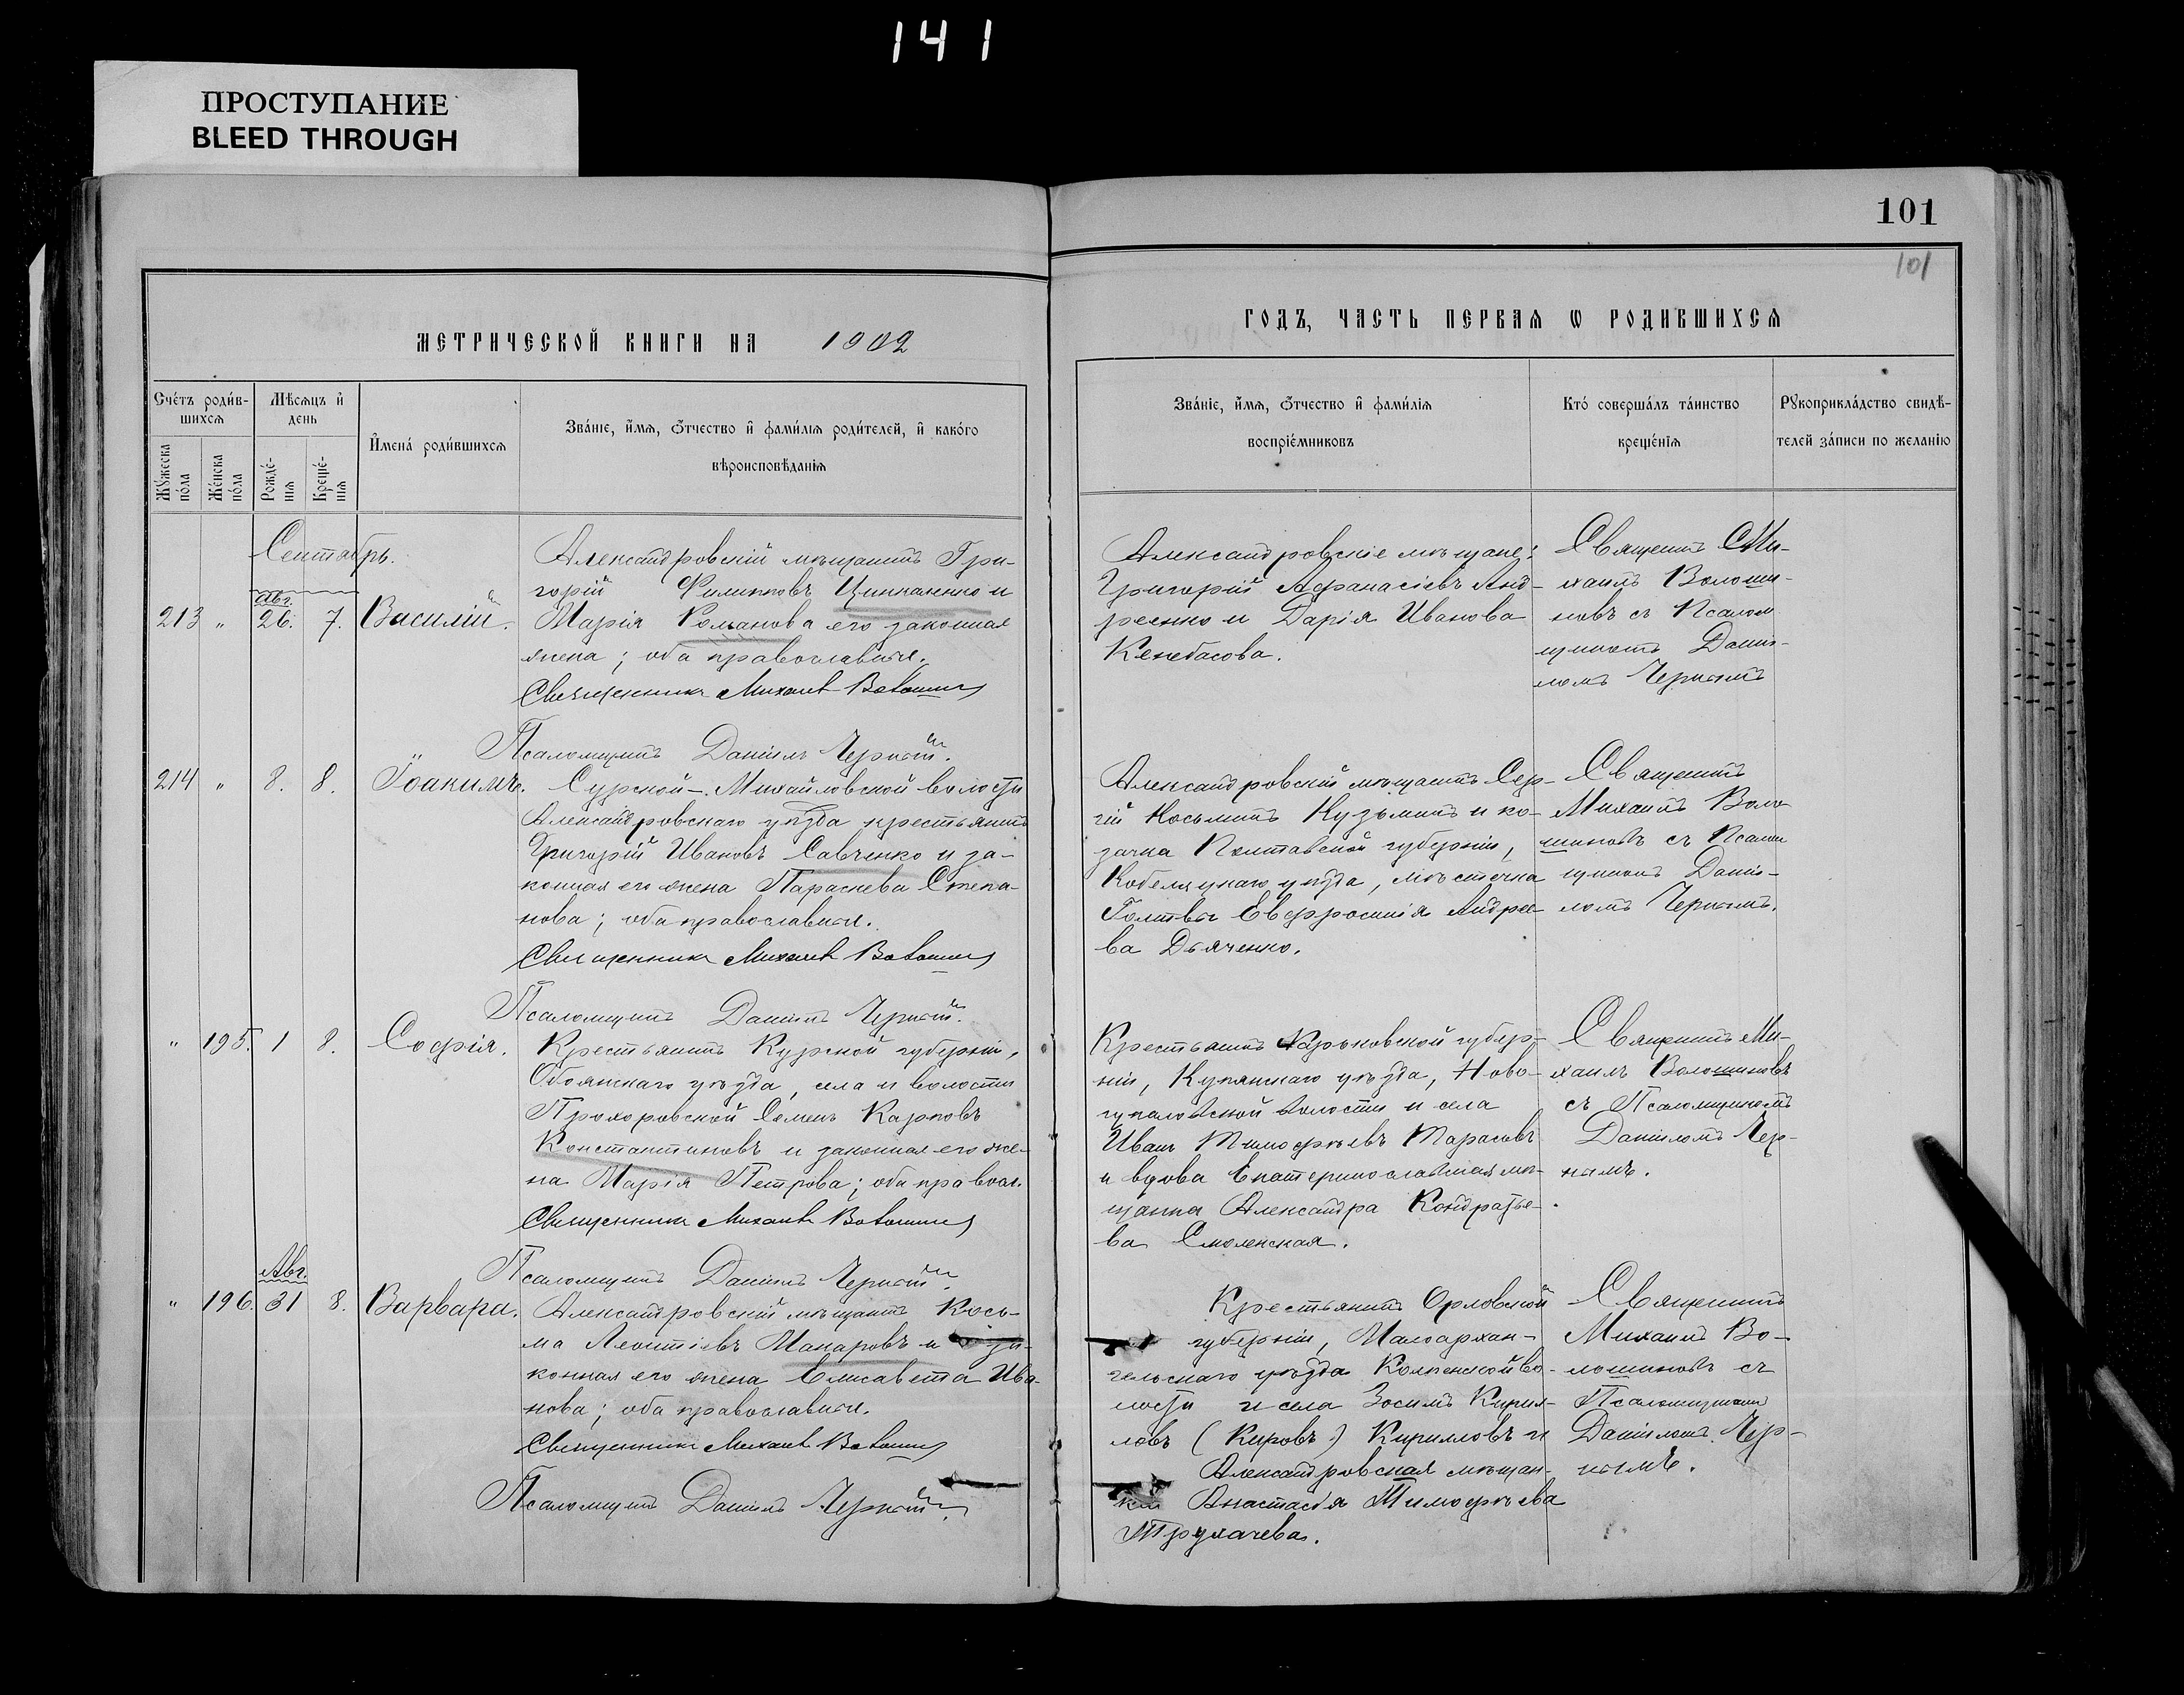 141
ПРОСТУПАНИЕ
BLEED THROUGH
101
101
МЕТРИЧЕСКОЙ КНИГИ НА 1902
ГОДЪ, ЧАСТЬ ПЕРВАЯ Ѡ РОДИВШИХСЯ
Счетъ родив-
шихся
Мѣсяцъ и
день
Мужеска
пола
Женска
пола
Рожде-
нія
Креще-
нія
Имена родившихся
Званіе, имя, отчество и фамилія родителей, и какого
вѣроисповѣданія
Званіе, имя, отчество и фамилія
воспріемниковъ
Кто совершалъ таинство
крещенія
Рукоприкладство свидѣ-
телей записи по желанію
Сентябрь.
Авг.
213 " 26. 7. Василій.
Александровскій мѣщанинъ Гри-
горій Филипповъ Цинканенко и
Марія Романова его законная
жена; оба православные.
Священникъ Михаилъ Волошинъ
Псаломщикъ Даніилъ Черный.
Александровскіе мѣщане:
Григорій Афанасіевъ Анд-
реенко и Дарія Иванова
Кенебасова.
Священникъ Ми-
хаилъ Волоши-
новъ съ Псалом
щикомъ Дані-
ломъ Чернымъ
214 " 8. 8. Іоакимъ.
Сурской-Михайловской волости
Александровскаго уѣзда крестьянинъ
Григорій Ивановъ Савченко и за-
конная его жена Параскева Степа-
нова; оба православные.
Священникъ Михаилъ Волошинъ
Псаломщикъ Даніилъ Черный.
Александровскій мѣщанинъ Сер-
гій Косьминъ Кузьминъ и ко-
зачка Полтавской губерніи,
Кобеляцкаго уѣзда, мѣстечка
Голтвы Евфросинія Андрее-
ва Дьяченко.
Священникъ
Михаилъ Воло
шиновъ съ Псалом
щикомъ Дані-
ломъ Чернымъ.
" 195. 1 8. Софія.
Крестьянинъ Курской губерніи,
Обоянскаго уѣзда, села и волости
Прохоровской Семенъ Карповъ
Константиновъ и законная его же-
на Марія Петрова; оба правосл.
Священникъ Михаилъ Волошинъ
Псаломщикъ Даніилъ Черный.
Крестьянинъ Харьковской губер-
ніи, Купянскаго уѣзда, Ново-
волости и села
Иванъ Тимофѣевъ Тарасовъ
и вдова Екатеринославская мѣ-
щанка Александра Кондратье-
ва Смоленская.
Священникъ Ми-
хаилъ Волошиновъ
съ Псаломщикомъ
Даніиломъ Чер-
нымъ.
Авг.
" 196. 31 8. Варвара.
Александровскій мѣщанинъ Кось-
ма Леонтіевъ Макаровъ и за-
конная его жена Елисавета Ива-
нова; оба православные.
Священникъ Михаилъ Волошинъ
Псаломщикъ Даніилъ Черный.
Крестьянинъ Орловской
губерніи, Малоархан-
гельскаго уѣзда Колпенской во-
лости и села Зосимъ Кирил-
ловъ (Кировъ) Кирилловъ и
Александровская мѣщан-
ка Анастасія Тимофѣева
Трухачева.
Священникъ
Михаилъ Во-
лошиновъ съ
Псаломщикомъ
Даніиломъ Чер-
нымъ.